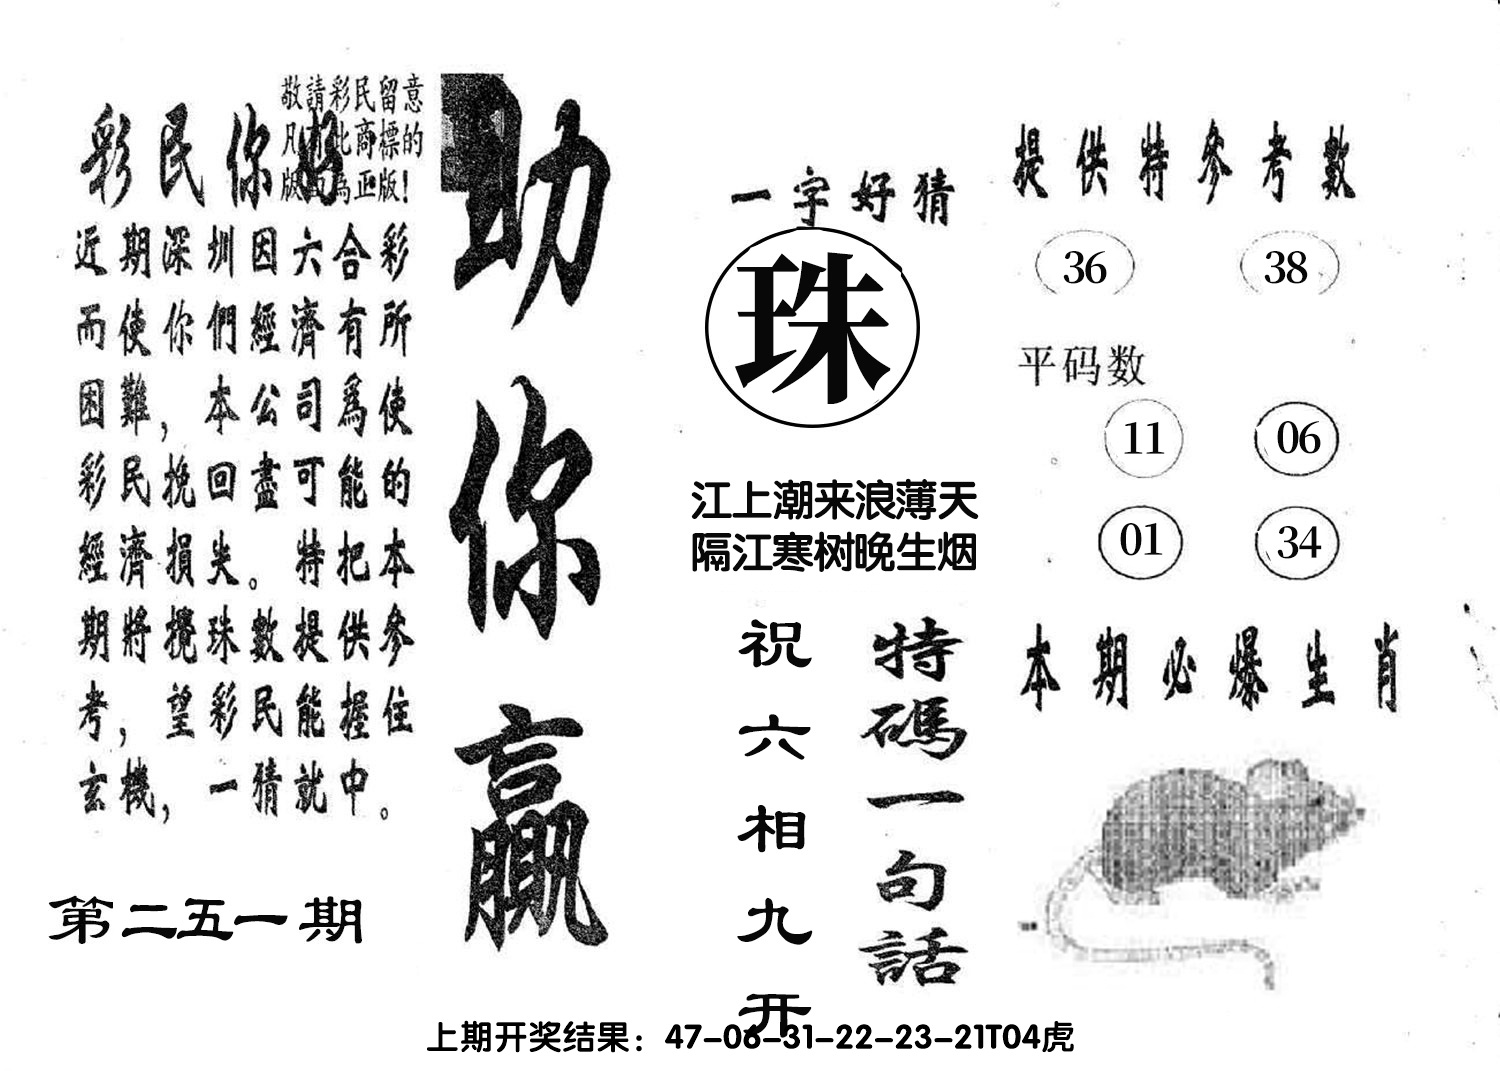 敬請彩民留意
凡有此商標的
版面為正版！
彩民你好
近期深圳因六合彩
而使你們經濟有所
困難，本公司爲使
彩民挽回盡可能的
經濟損失。特把本
期將攪珠數提供參
考，望彩民能握住
玄機，一猜就中。
第二五一期
助你赢
一字好猜
珠
江上潮来浪薄天
隔江寒树晚生烟
特碼一句話
祝六相九开
提供特参考數
36 38
平码数
11 06
01 34
本期必爆生肖
上期开奖结果：47-06-31-22-23-21T04虎